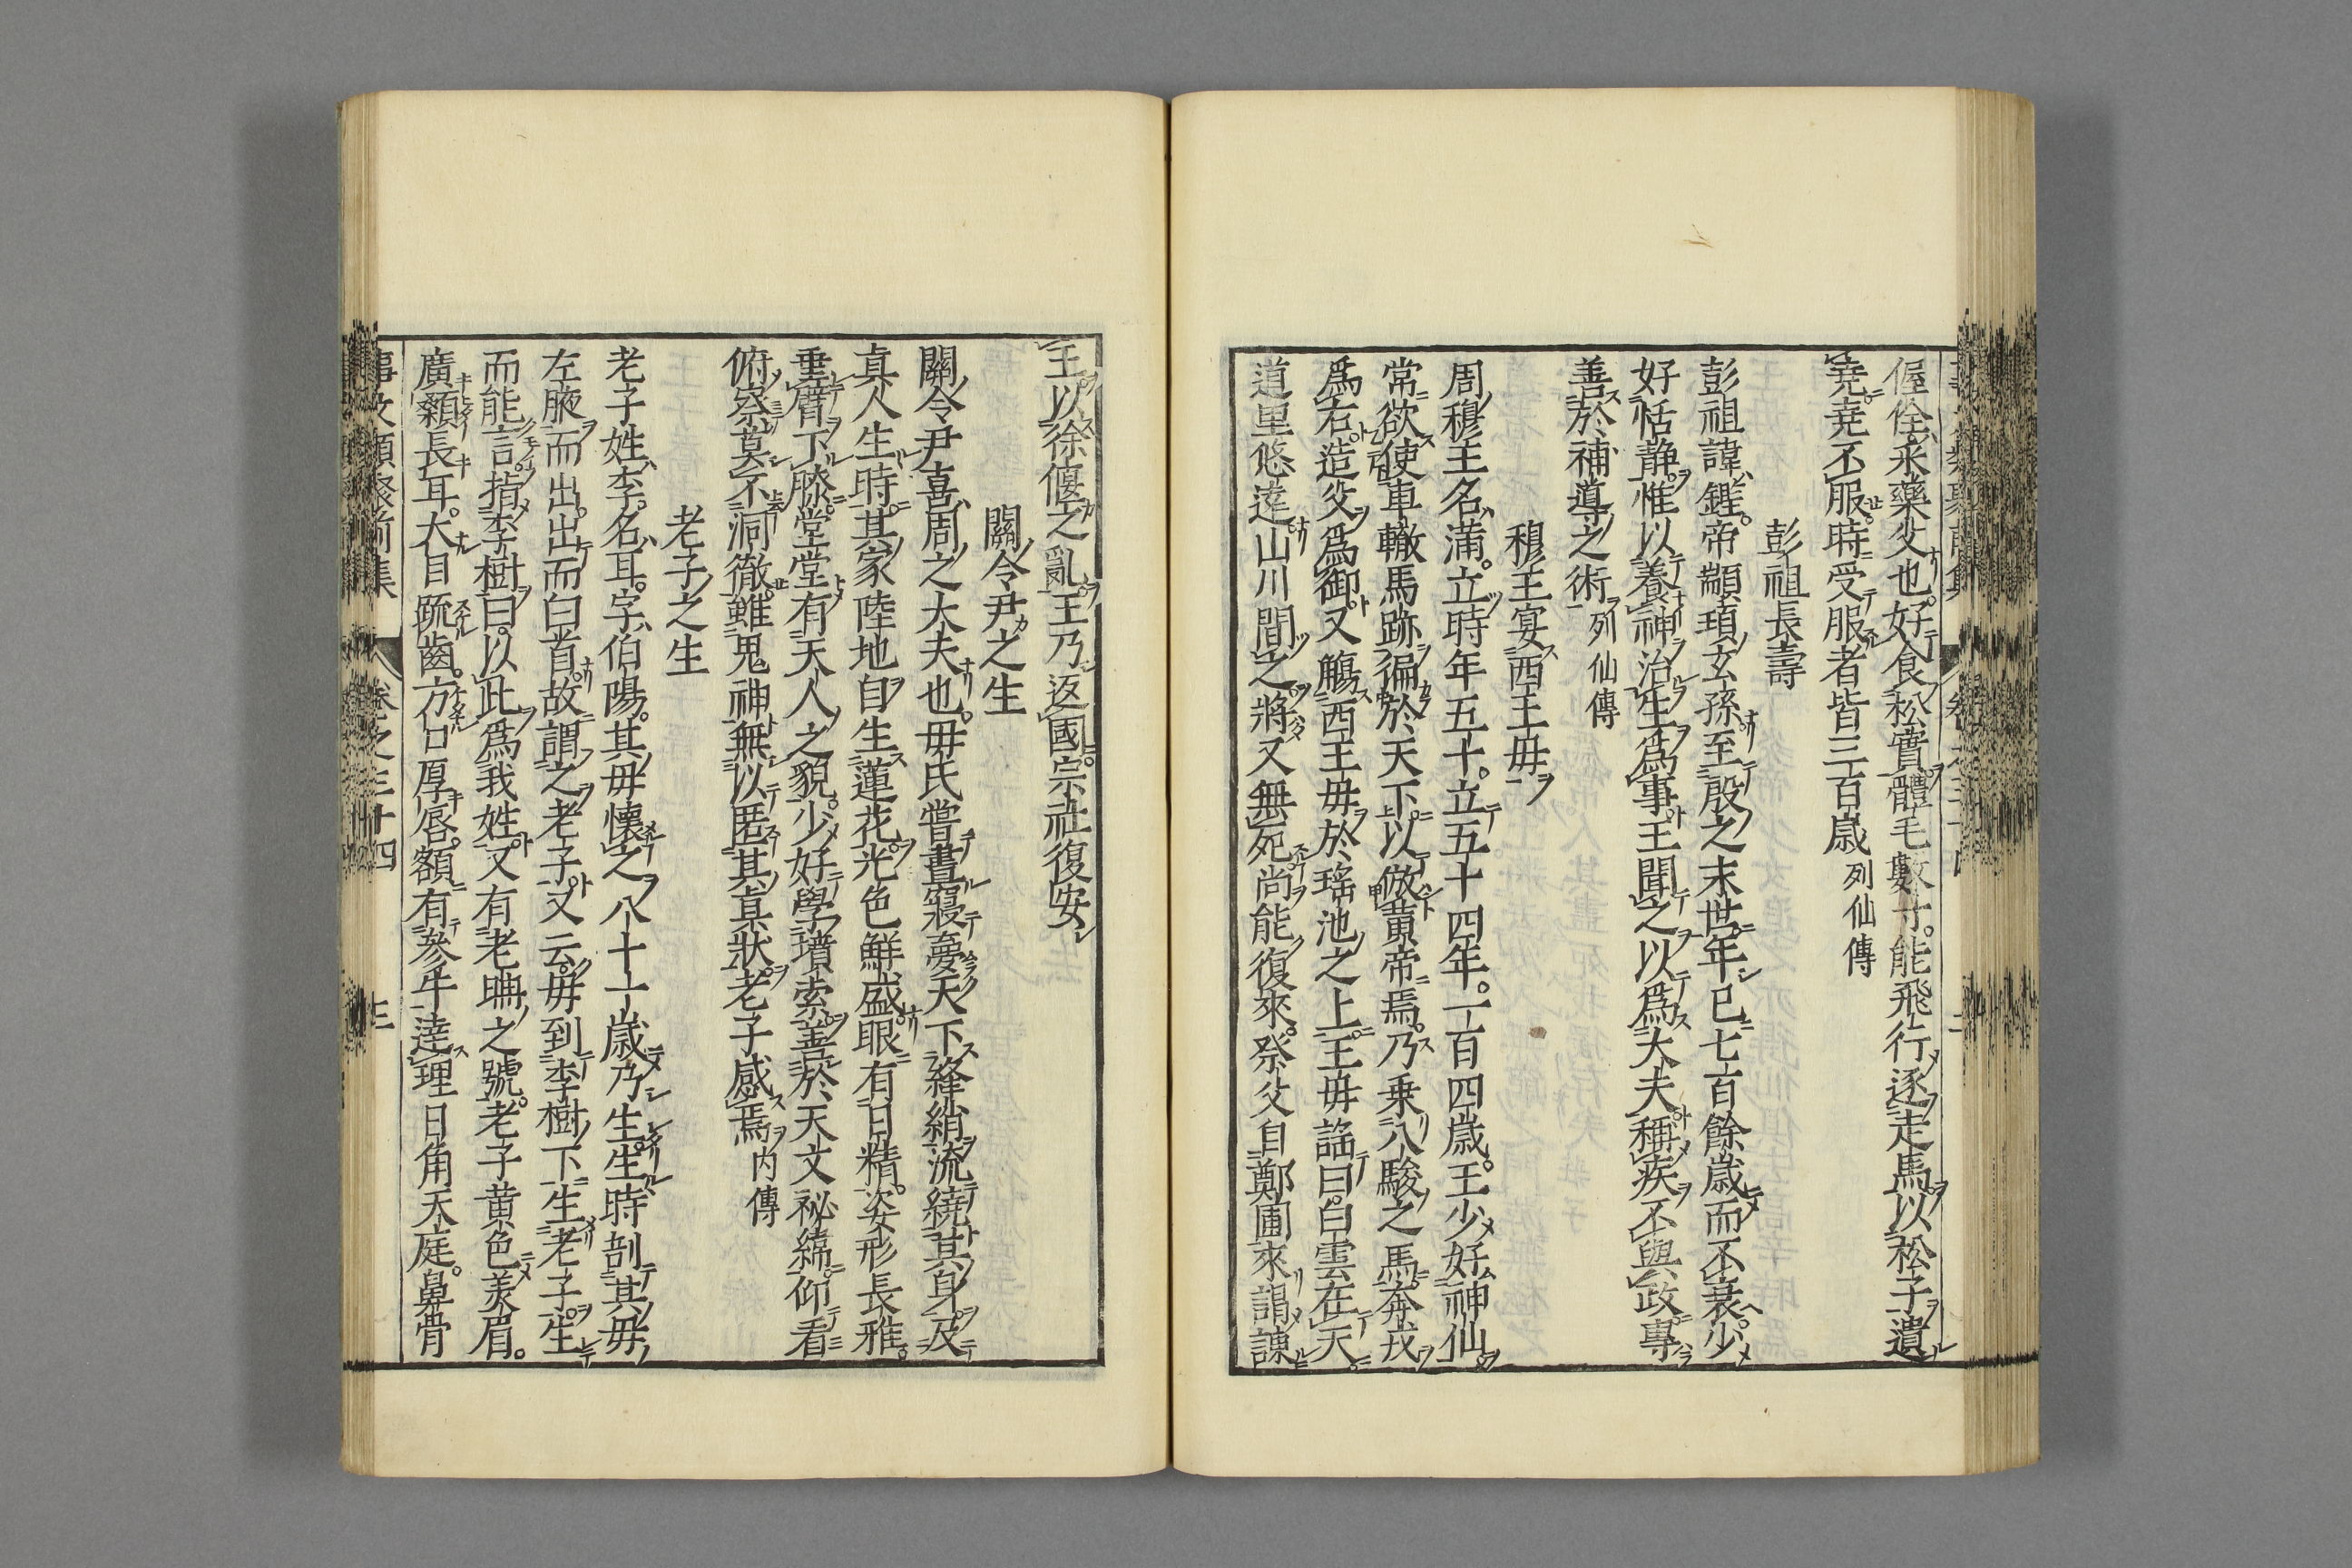 偓佺采藥父也好食松實體毛數寸能飛行逐走馬以松子遺
堯堯不服時受服者皆三百歳列仙傳
彭祖長壽
彭祖諱鏗帝顓頊玄孫至殷之末世年已七百餘歳而不衰少
好恬静惟以養神治生爲事王聞之以爲大夫稱疾不與政專
善於補導之術列仙傳
穆王宴西王毋
周穆王名滿立時年五十立五十四年一百四歳王少好神仙
常欲使車轍馬跡徧於天下以倣黄帝焉乃乗八駿之馬奔戎
爲右造父爲御又觴西王毋於瑤池之上王毋謡曰白雲在天
道里悠遠山川間之將又無死尚能復來祭父自鄭圃來謁諌
王以徐偃之亂王乃返國宗社復安
關令尹之生
關令尹喜周之大夫也毋氏嘗晝寢夢天下絳綃流繞其身及
真人生時其家陸地自生蓮花光色鮮盛眼有日精姿形長雅
垂臂下膝堂堂有天人之貌少好學墳索善於天文祕緯仰看
俯察莫不洞徹雖鬼神無以匿其真狀老子感焉内傳
老子之生
老子姓李名耳字伯陽其毋懷之八十一歳乃生生時剖其毋
左腋而出出而白首故謂之老子又云毋到李樹下生老子生
而能言指李樹曰以此爲我姓又有老耼之號老子黄色美眉
廣顙長耳大目䟽齒方口厚唇額有參午達理日角天庭鼻骨
事文類聚前集 卷之三十四